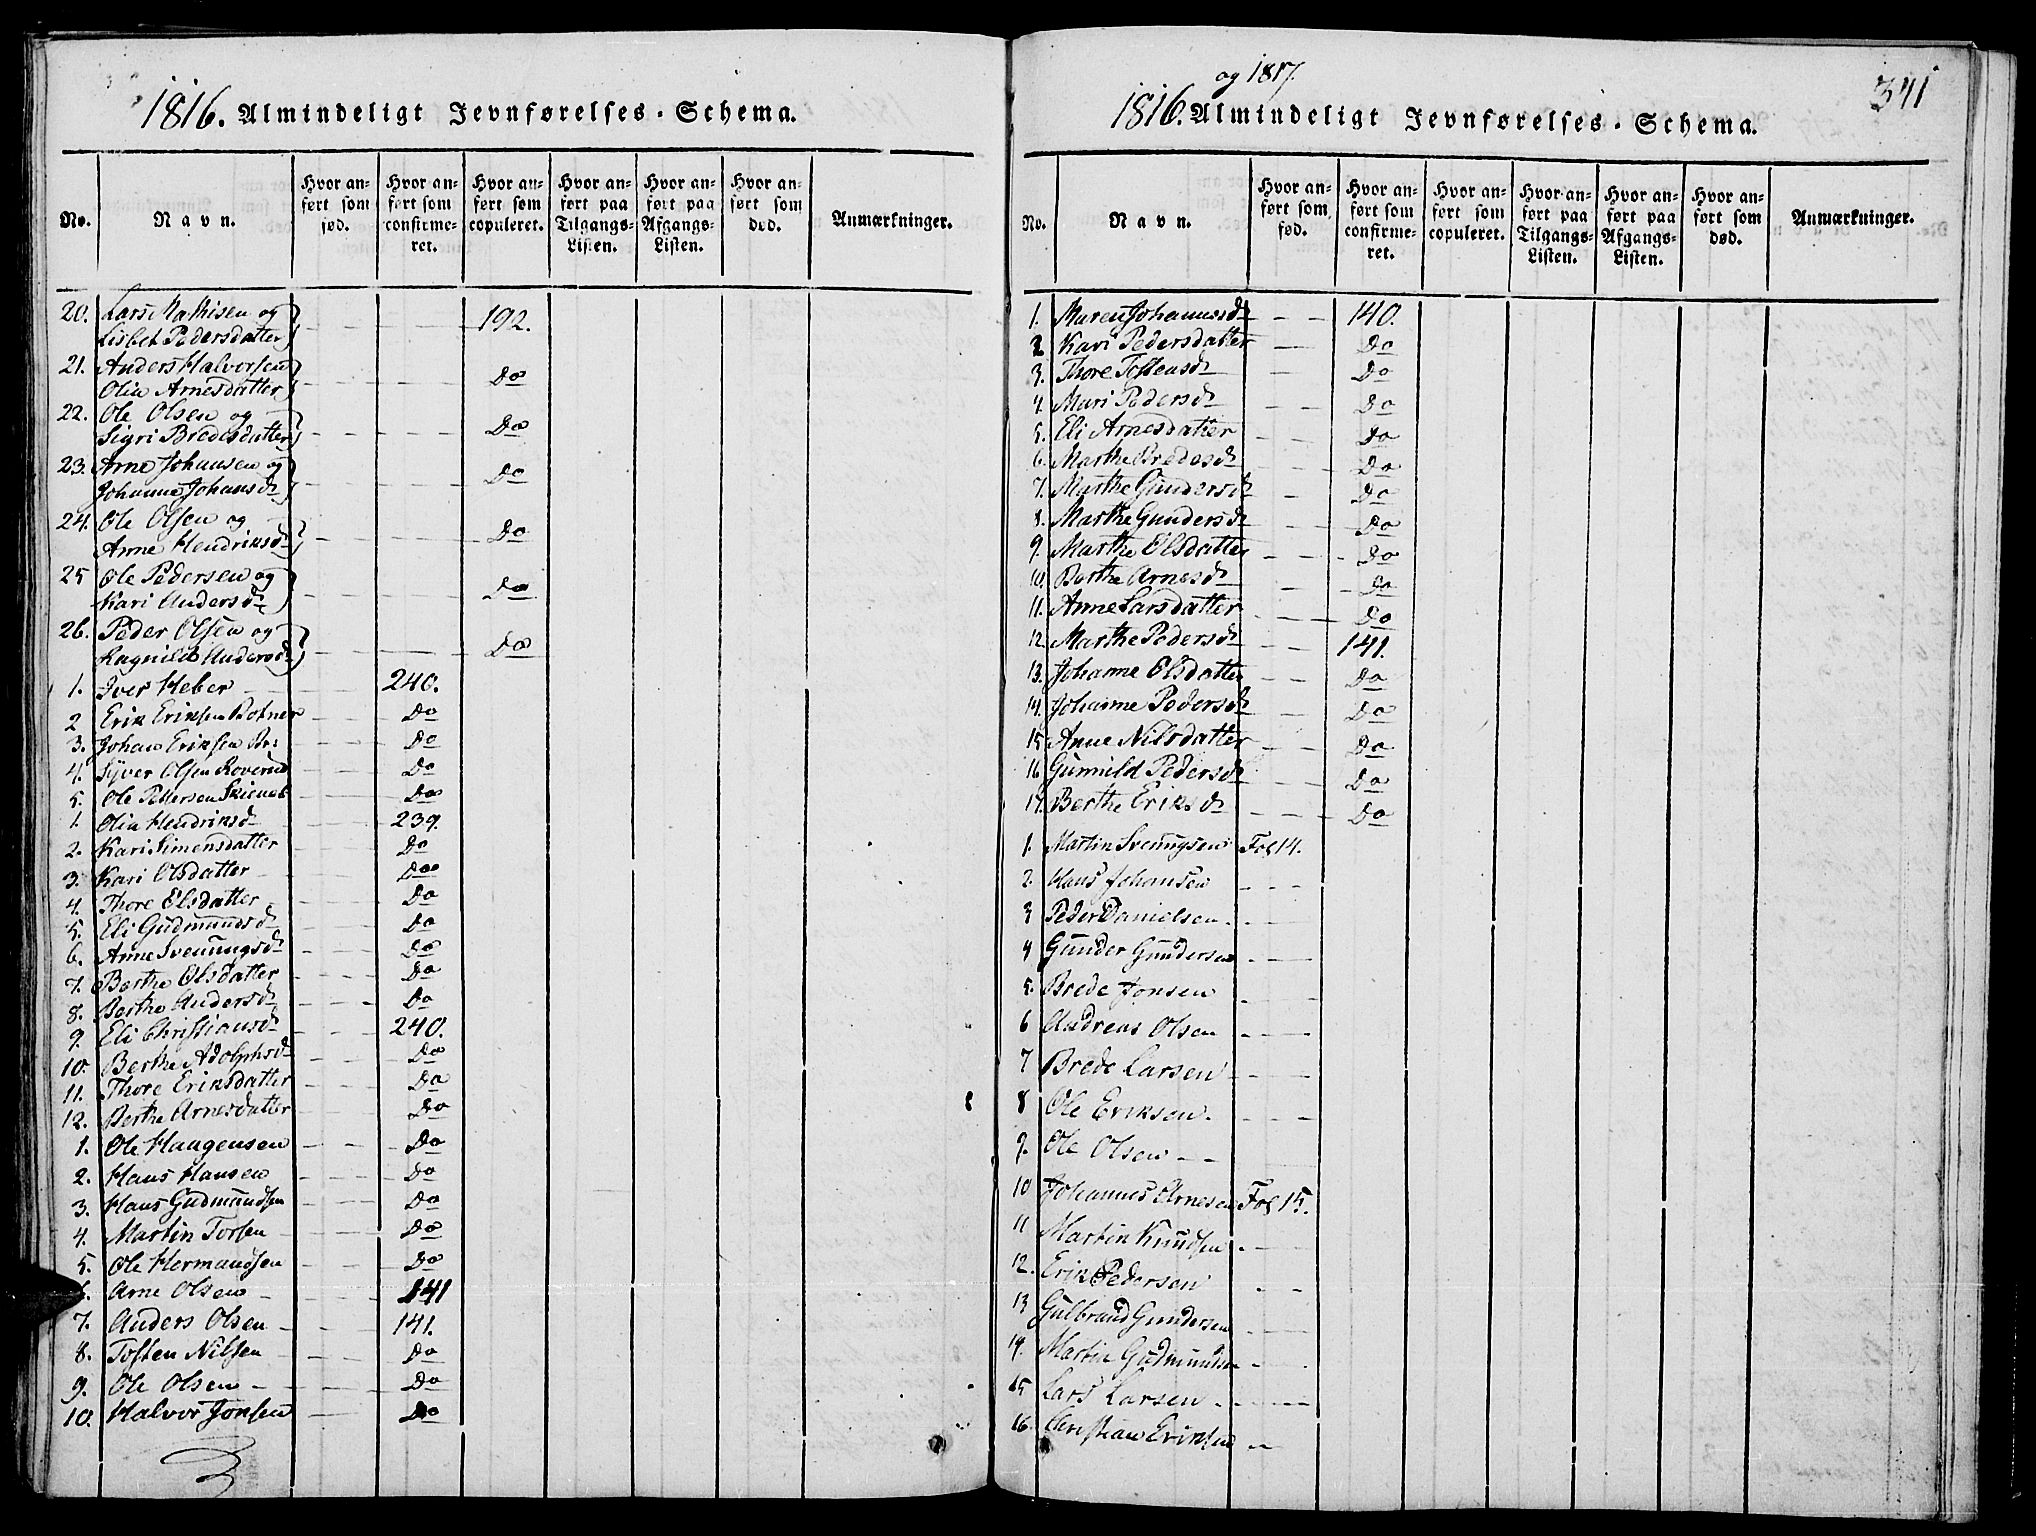 1816. Almindeligt Jevnførelses-Schema.
No. Navn. Hvor anført som fød. Hvor anført som confirmeret. Hvor anført som copuleret. Hvor anført paa Tilgangs-Listen. Hvor anført paa Afgangs-Listen. Hvor anført som død. Anmærkninger.
20. Lars Mathisen og
Lisbet Pedersdatter 192.
21. Anders Halvorsen
Olia Arnesdatter Do
22. Ole Olsen og
Sigri Bredesdatter Do
23. Arne Johansen og
Johanne Johansd Do
24. Ole Olsen og
Anne Hendriksd Do
25 Ole Pedersen og
Kari Andersd Do
26. Peder Olsen og
Ragnild Andersd Do
1. Iver Heber 240.
2 Erik Eriksen Botner Do
3. Johan Eriksen Do
4. Syver Olsen Roverud Do
5. Ole Pettersen Do
1. Olia Hendriksd 239.
2. Kari Simensdatter Do
3. Kari Olsdatter Do
4. Thore Olsdatter Do
5. Eli Gudmundsd Do
6. Anne Svenungsd Do
7. Berthe Olsdatter Do
8. Berthe Andersd Do
9. Eli Christiansd 240.
10. Berthe Adolphsd Do
11. Thore Eriksdatter Do
12. Berthe Arnesdatter Do
1. Ole Haugensen Do
2. Hans Hansen Do
3. Hans Gudmundsen Do
4. Martin Torsen Do
5. Ole Hermandsen Do
6. Arne Olsen 141
7. Anders Olsen 141.
8. Tosten Nilsen Do
9. Ole Olsen Do
10. Halvor Jonsen Do
og 1817.
1816. Almindeligt Jevnførelses-Schema.
341
No. Navn. Hvor anført som fød. Hvor anført som confirmeret. Hvor anført som copuleret. Hvor anført paa Tilgangs-Listen. Hvor anført paa Afgangs-Listen. Hvor anført som død. Anmærkninger.
1. Maren Johannesd 140.
2 Kari Pedersdatter Do
3. Thore Tostensd Do
4. Mari Pedersd Do
5. Eli Arnesdatter Do
6. Marthe Bredesd Do
7. Marthe Gundersd Do
8. Marthe Gundersd Do
9. Marthe Olsdatter Do
10. Berthe Arnesd Do
11. Anne Larsdatter Do
12. Marthe Pedersd 141.
13. Johanne Olsdatter Do
14. Johanne Pedersd Do
15 Anne Nilsdatter Do
16 Gunnild Pedersd Do
17. Berthe Eriksd Do
1. Martin Svenngsen Fol 14.
2. Hans Johansen
3 Peder Danielsen
4 Gunder Gundersen
5. Brede Jonsen
6 Andreas Olsen
7 Brede Larsen
8 Ole Eriksen
9. Ole Olsen
10 Johannes Arnesen Fol 15.
11 Martin Knudsen
12. Erik Pedersen
13 Gulbrand Gundersen
14. Martin Gudmundsen
15 Lars Larsen
16. Christian Eriksen